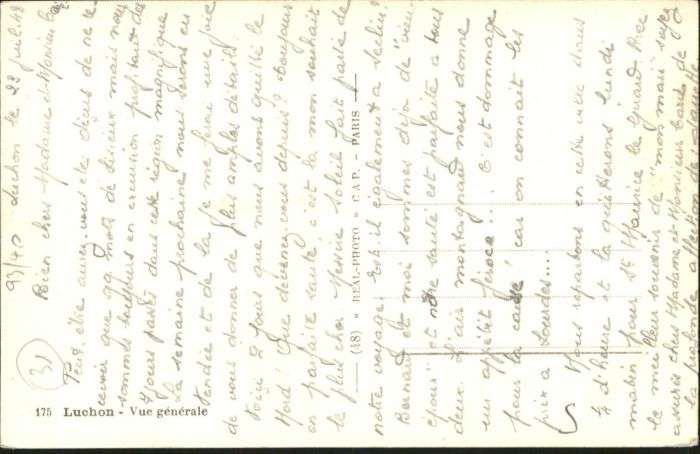 93/40 Luchon le 23 juil. 48
Bien chers Madame et Monsieur
Peut être aurez-vous été déçus de ne re
cevoir que qq. mots de Lisieux mais nous
sommes toujours en excursion profitant des
jours passés dans cette région magnifique
La semaine prochaine nous serons en
Vendée et de là je me ferai une joie
de vous donner de plus amples détails.
Voici 9 jours que nous avons quitté le
Nord! Que devenez-vous depuis? toujours
en parfaite santé, c'est là mon souhait
le plus cher. Messire soleil fait partie de
notre voyage. Est-il également à Seclin?
Bernard et moi sommes déjà de "vieux
époux" et notre santé est parfaite à tous
deux. L'air montagnard nous donne
un appétit féroce... C'est dommage
pour la caisse car on connaît les
prix à Lourdes...
Nous repartons en cette ville dans
¼ d'heure et la quitterons lundi
matin pour St Maurice le Girard. Avec
le meilleur souvenir de "mon mari" soyez
assurés chers Madame et Monsieur de
la
(48) « REAL-PHOTO » C.A.P. - PARIS
31
175 Luchon - Vue générale